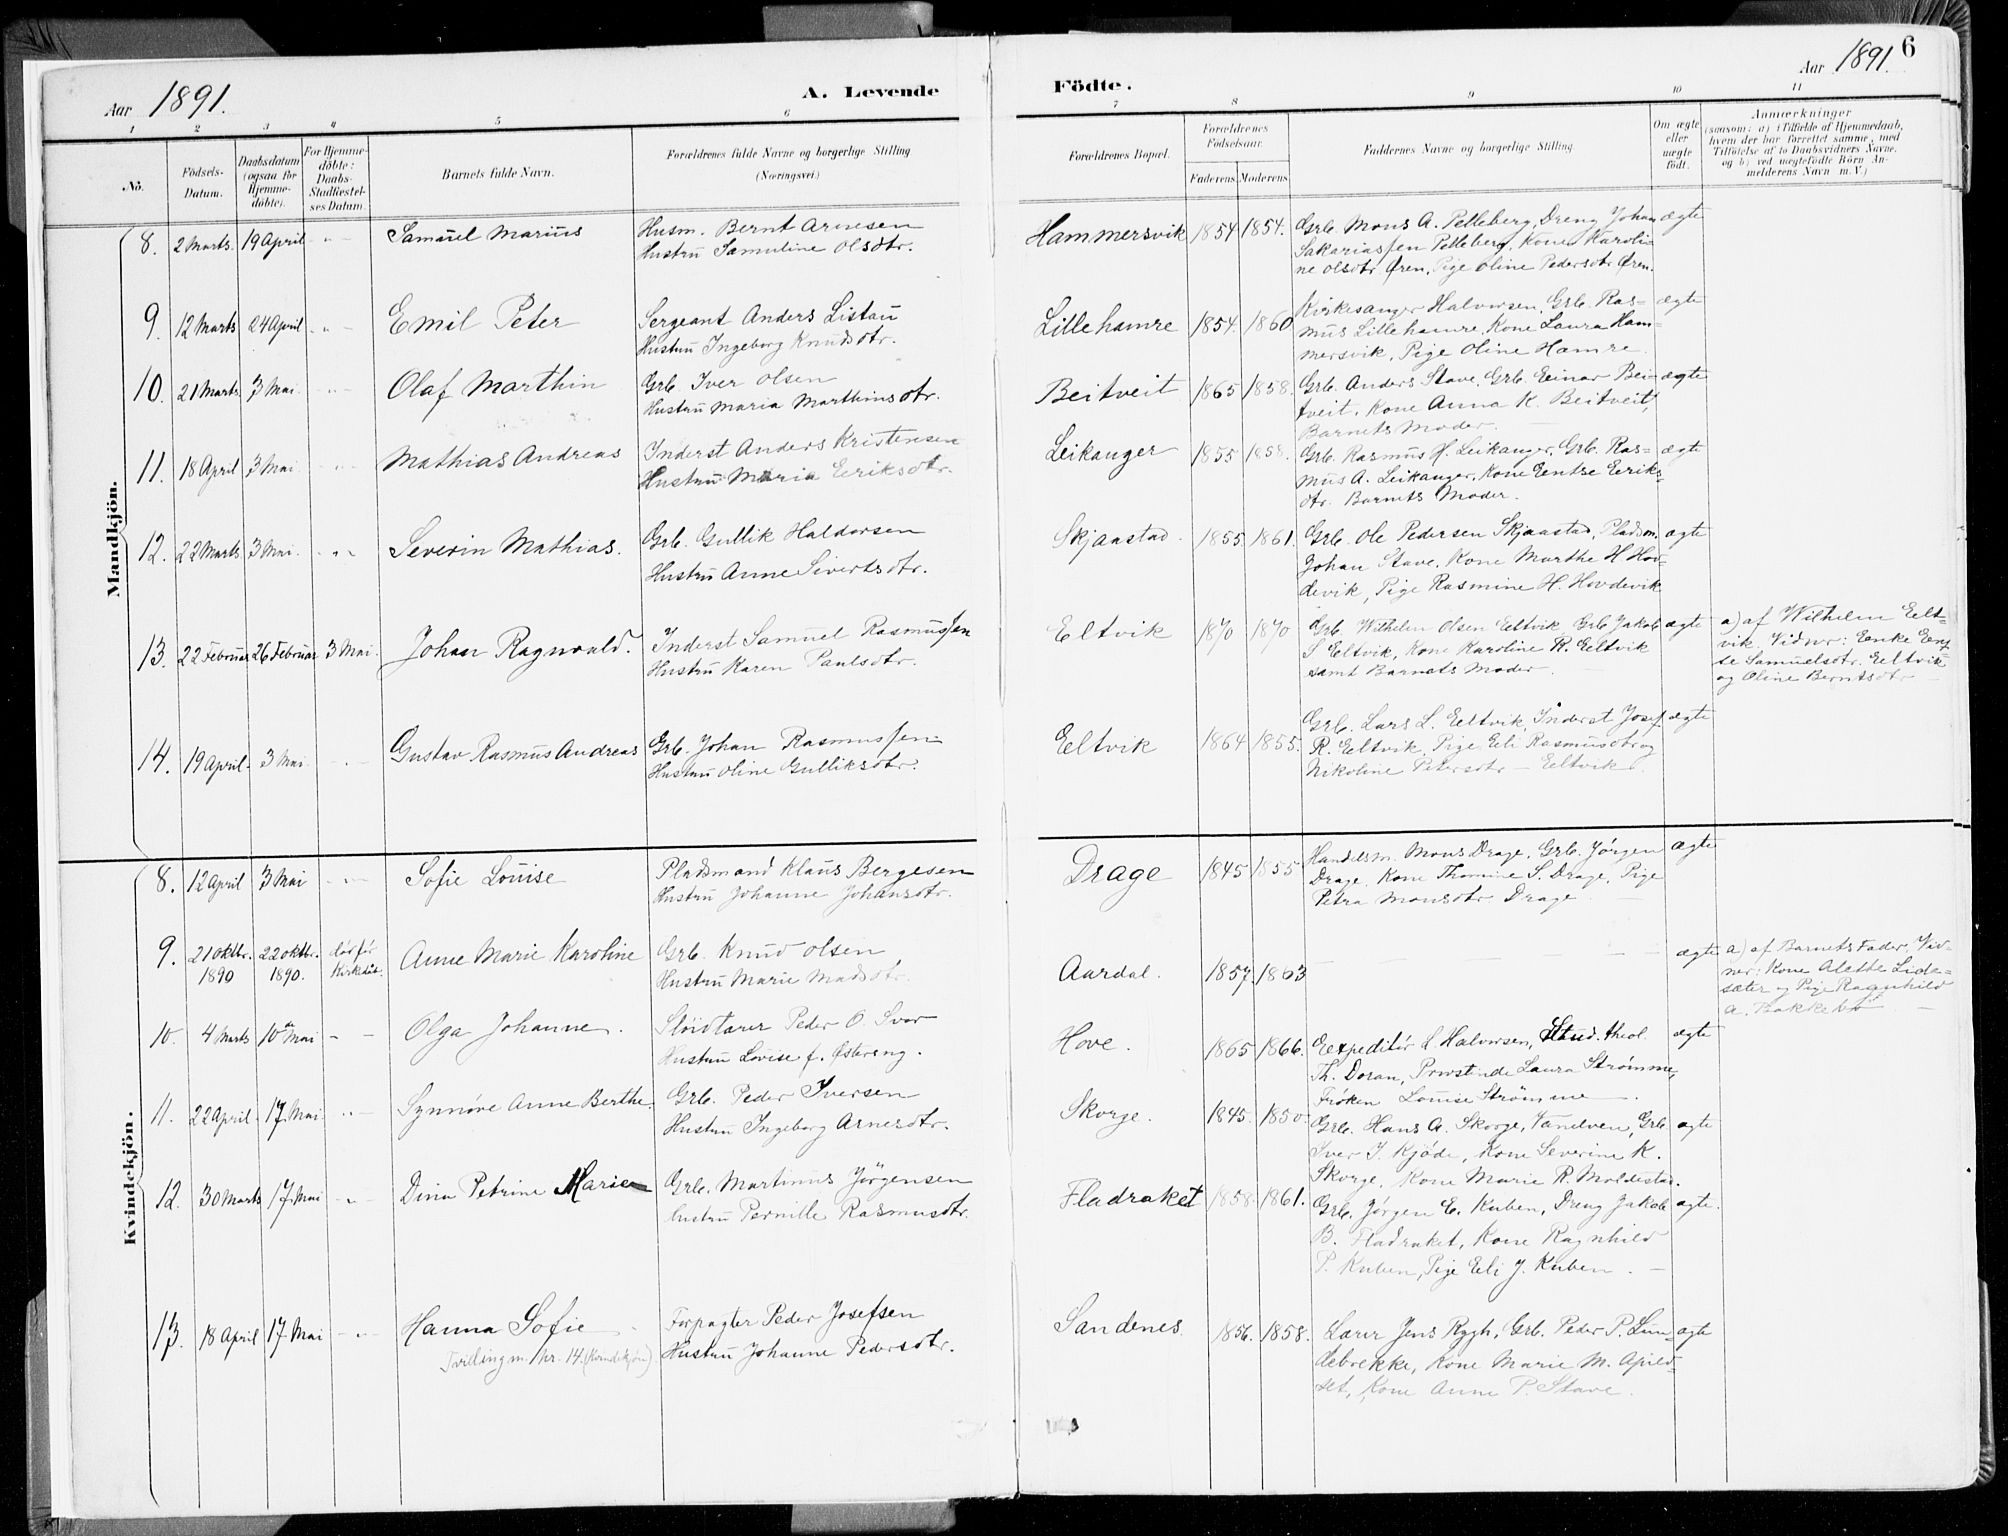 Aar 1891.
A. Levende
Födte.
Aar 1891. 6
1 2 3 4 5 6 7 8 9 10 11
No.
Födsels-
Datum.
Daabsdatum
(ogsaa for
Hjemme-
döbte).
For Hjemme-
döbte:
Daabs-
Stadfæstel-
ses Datum.
Barnets fulde Navn.
Forældrenes fulde Navne og borgerlige Stilling
(Næringsvei.)
Forældrenes Bopæl.
Forældrenes
Födselsaar.
Faderens. Moderens.
Faddernes Navne og borgerlige Stilling
Om ægte
eller
uægte
födt.
Anmærkninger
(saasom: a) i Tilfælde af Hjemmedaab,
hvem der har forrettet samme, med
Tilföielse af to Daabsvidners Navne,
og b) ved uægtefödte Börn An-
melderens Navn m. V.)
Mandkjön.
8. 2 Marts. 19 April - " - Samuel Marius
Husm. Bernt Arnesen
Hustru Samuline Olsdtr.
Hammersvik 1854 1854.
Grb. Mons A. Pelleberg, Dreng Johan
Sakariassen Pelleberg, Kone Karoli-
ne Olsdtr. Øren, Pige Oline Pedersdtr Øren.
ægte
9. 12 Marts 24 April - " - Emil Peter
Sergeant Anders Listau
Hustru Ingeborg Knudsdtr.
Lillehamre 1854. 1860
Kirkesanger Halvorsen, Grb. Ras-
mus Lillehamre, Kone Laura Ham-
mersvik, Pige Oline Hamre.
ægte
10. 21 Marts. 3 Mai. - " - Olaf Marthin
Grb. Iver Olsen
Hustru Maria Marthinsdtr.
Beitveit 1865 1858.
Grb. Anders Stave, Grb. Einar Bei-
tveit, Kone Anna K. Beitveit,
Barnets Moder.
ægte
11. 18 April 3 Mai - " - Mathias Andreas
Inderst Anders Kristensen
Hustru Maria Eeriksdtr.
Leikanger 1855 1858.
Grb. Rasmus H. Leikanger, Grb. Ras-
mus A. Leikanger, Kone Eentse Eeriks-
dtr. Barnets Moder.
ægte
12. 22 Marts. 3 Mai. - " - Severin Mathias.
Grb. Gullik Haldorsen
Hustru Anne Sivertsdtr.
Skjaastad. 1855 1861.
Grb. Ole Pedersen Skjaastad, Pladsm.
Johan Stave, Kone Marthe H. Hov-
devik, Pige Rasmine H. Hovdevik
ægte
13. 22 Februar 26 Februar 3 Mai. Johan Ragnvald.
Inderst Samuel Rasmussen
Hustru Karen Paulsdtr.
Eltvik 1870 1870
Grb. Wilhelm Olsen Eeltvik Grb Jakob
S Eeltvik, Kone Karoline R. Eeltvik
samt Barnets Moder.
ægte
a) af Wilhelm Eelt-
vik. Vidnr: Eenke Eent-
se Samuelsdtr. Eeltvik
og Oline Berntsdtr -
14. 19 April. 3 Mai - " - Gustav Rasmus Andreas
Grb. Johan Rasmussen
Hustru Oline Gulliksdtr.
Eeltvik 1864 1855.
Grb. Lars L. Eeltvik, Inderst Josef
R. Eeltvik, Pige Eeli Rasmusdtr og
Nikoline Petersdtr - Eeltvik.
ægte
Kvindekjön.
8. 12 April 3 Mai - " - Sofie Louise
Pladsmand Klaus Bergesen
Hustru Johanne Johansdtr.
Drage 1845 1855
Handelsm. Mons Drage, Grb. Jørgen
Drage, Kone Thomine S. Drage, Pige
Petra Monsdtr Drage.
ægte
9. 21 Oktbr. 1890 22 Oktbr. 1890. død før Kirkedåb. Anne Marie Karoline
Grb. Knud Olsen
Hustru Marie Madsdtr.
Aardal. 1857. 1863 - - - -
ægte
a) af Barnets Fader. Vid-
ner: Kone Alette Lide-
sæter og Pige Ragnhild
A. Bakkebø
10. 4 Marts 10de Mai - - Olga Johanne.
Sløidlærer Peder O. Svor
Hustru Lovise f. Østereng.
Hove. 1865 1866.
Expeditør L Halvorsen, Stud. theol.
Th. Doran, Provstinde Laura Strømme,
Frøken Louise Strömme
ægte
11. 22 April. 17. Mai. - " - Synnøve Anne Berthe.
Grb. Peder Iversen
Hustru Ingeborg Arnesdtr.
Skorge. 1845. 1850.
Grb. Hans A. Skorge, Vandven, Grb.
Iver J. Kjøde, Kone Severine K.
Skorge, Kone Marie R. Moldestad.
ægte
12. 30 Marts 17. Mai - " - Dina Petrine Marie
Grb. Martinus Jörgensen
Hustru Pernille Rasmusdtr.
Fladraket 1858 1861.
Grb. Jørgen E. Kuben, Dreng Jakob
B. Fladraket, Kone Ragnhild
P. Kuben, Pige Eeli J. Kuben. -
ægte.
13. 18 April 17. Mai - " - Hanna Sofie
Tvilling m. Nr. 14. (Kvindekjøn)
Forpagter Peder Josefsen
Hustru Johanne Pedersdtr.
Sandenes. 1856. 1858.
Lærer Jens Rygh, Grb. Peder P. Lun-
debrekke, Kone Marie M. Apild-
set, Kone Anne P. Stave.
ægte